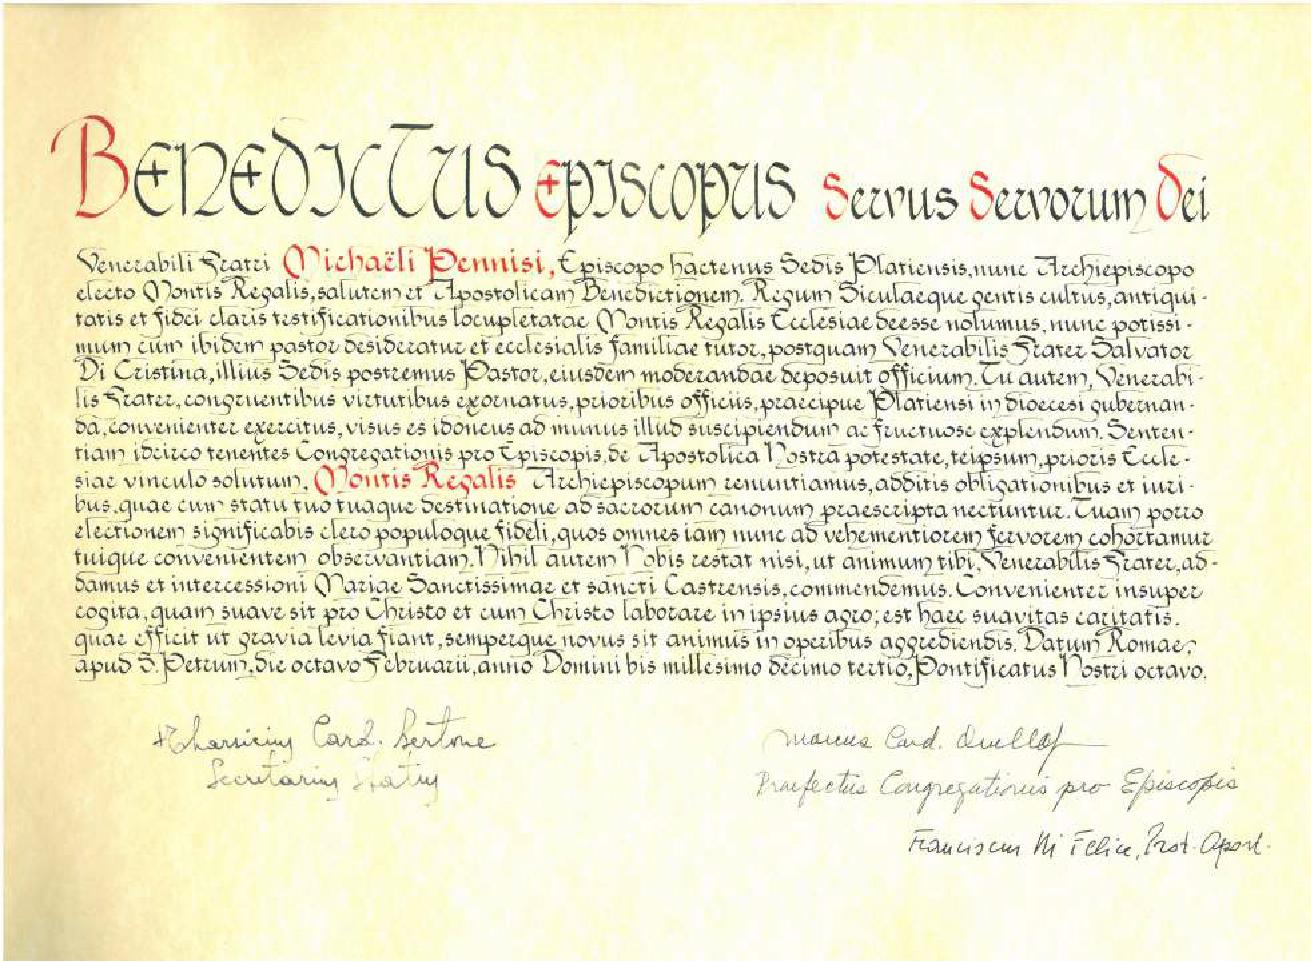 Benedictus Episcopus Servus Servorum Dei
Venerabili Fratri Michaëli Pennisi, Episcopo hactenus Sedis Platiensis, nunc Archiepiscopo
electo Montis Regalis, salutem et Apostolicam Benedictionem. Regum Siculaeque gentis cultus, antiqui-
tatis et fidei claris testificationibus locupletatae Montis Regalis Ecclesiae deesse nolumus, nunc potissi-
mum cum ibidem pastor desideratur et ecclesialis familiae tutor, postquam Venerabilis Frater Salvator
Di Cristina, illius Sedis postremus Pastor, eiusdem moderandae deposuit officium. Tu autem, Venerabi-
lis Frater, congruentibus virtutibus exornatus, prioribus officiis, praecipue Platiensi in dioecesi gubernan-
da, convenienter exercitus, visus es idoneus ad munus illud suscipiendum ac fructuose explendum. Senten-
tiam idcirco tenentes Congregationis pro Episcopis, de Apostolica Nostra potestate, teipsum, prioris Eccle-
siae vinculo solutum, Montis Regalis Archiepiscopum renuntiamus, additis obligationibus et iuri-
bus, quae cum statu tuo tuaque destinatione ad sacrorum canonum praescripta nectuntur. Tuam porro
electionem significabis clero populoque fideli, quos omnes iam nunc ad vehementiorem fervorem cohortamur
tuique convenientem observantiam. Nihil autem Nobis restat nisi, ut animum tibi, Venerabilis Frater, ad-
damus et intercessioni Mariae Sanctissimae et sancti Castrensis, commendemus. Convenienter insuper
cogita, quam suave sit pro Christo et cum Christo laborare in ipsius agro; est haec suavitas caritatis,
quae efficit ut gravia levia fiant, semperque novus sit animus in operibus aggrediendis. Datum Romae,
apud S. Petrum, die octavo Februarii, anno Domini bis millesimo decimo tertio, Pontificatus Nostri octavo.
Tharsicius Card. Bertone
Secretarius Status
Marcus Card. Ouellet
Praefectus Congregationis pro Episcopis
Franciscus Di Felice, Prot. Apost.